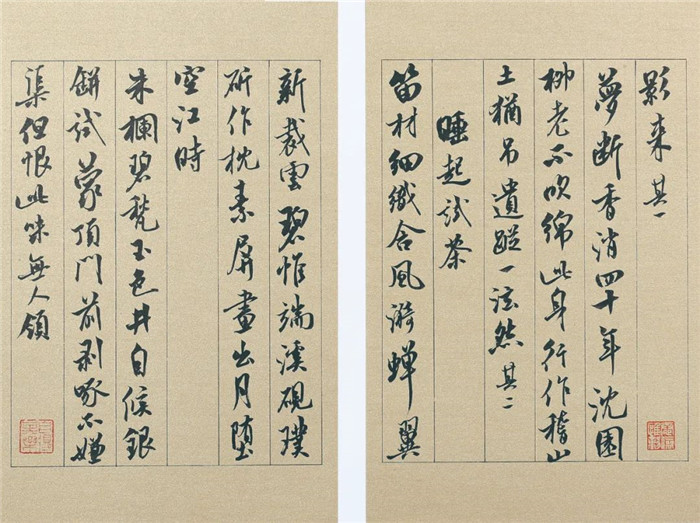 影来 其一
夢断香消四十年沈園
柳老不吹綿此身行作稽山
土猶吊遺蹤一泫然 其二
睡起試茶
笛材細織含風漪蟬翼
新裁雲碧帷端溪硯璞
斫作枕素屏畫出月墮
空江時
朱欄碧甃玉色井自候銀
缾試蒙頂門前剥啄不嫌
渠但恨此味無人領